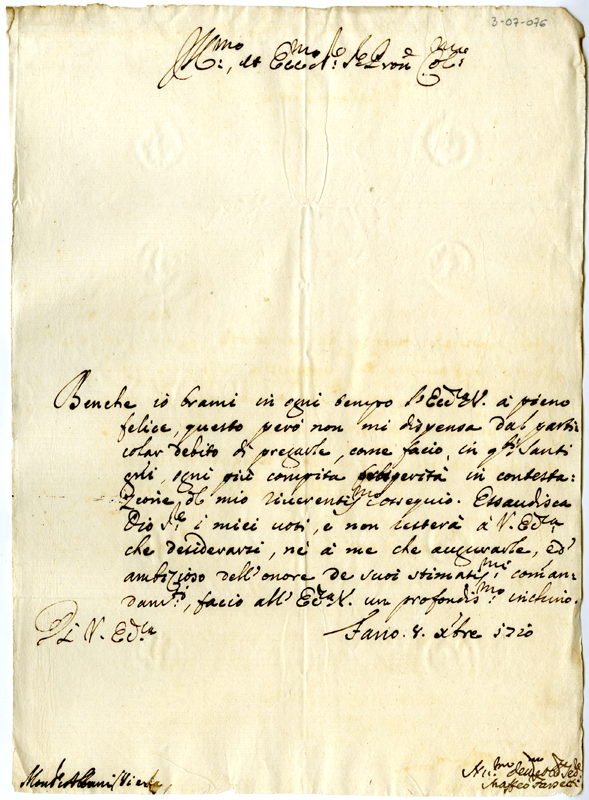 3-07-076
Ill.mo, et Ecc.mo Sig.re Sig.re Pron.e Col.mo
Benche io brami in ogni tempo l'Ecc.a V. à pieno
felice, questo però non mi dispensa dal parti
colar debito di pregarle, come facio, in q.ti Santi
gñi, ogni più compita prosperità in contesta:
zione del mio riverentis.mo ossequio. Essaudisca
Dio S.re i miei voti, e non resterà à V. Ecc.a
che desiderarsi, nè à me che augurarle, ed'
ambizioso dell'onore de suoi stimatis.mi coman-
dam.ti, facio all'Ecc.a V. un profondis.mo inchino.
Di V. Ecc.a Fano. 8. Xbre 1720
Mons.r Albani Vienna
Matteo